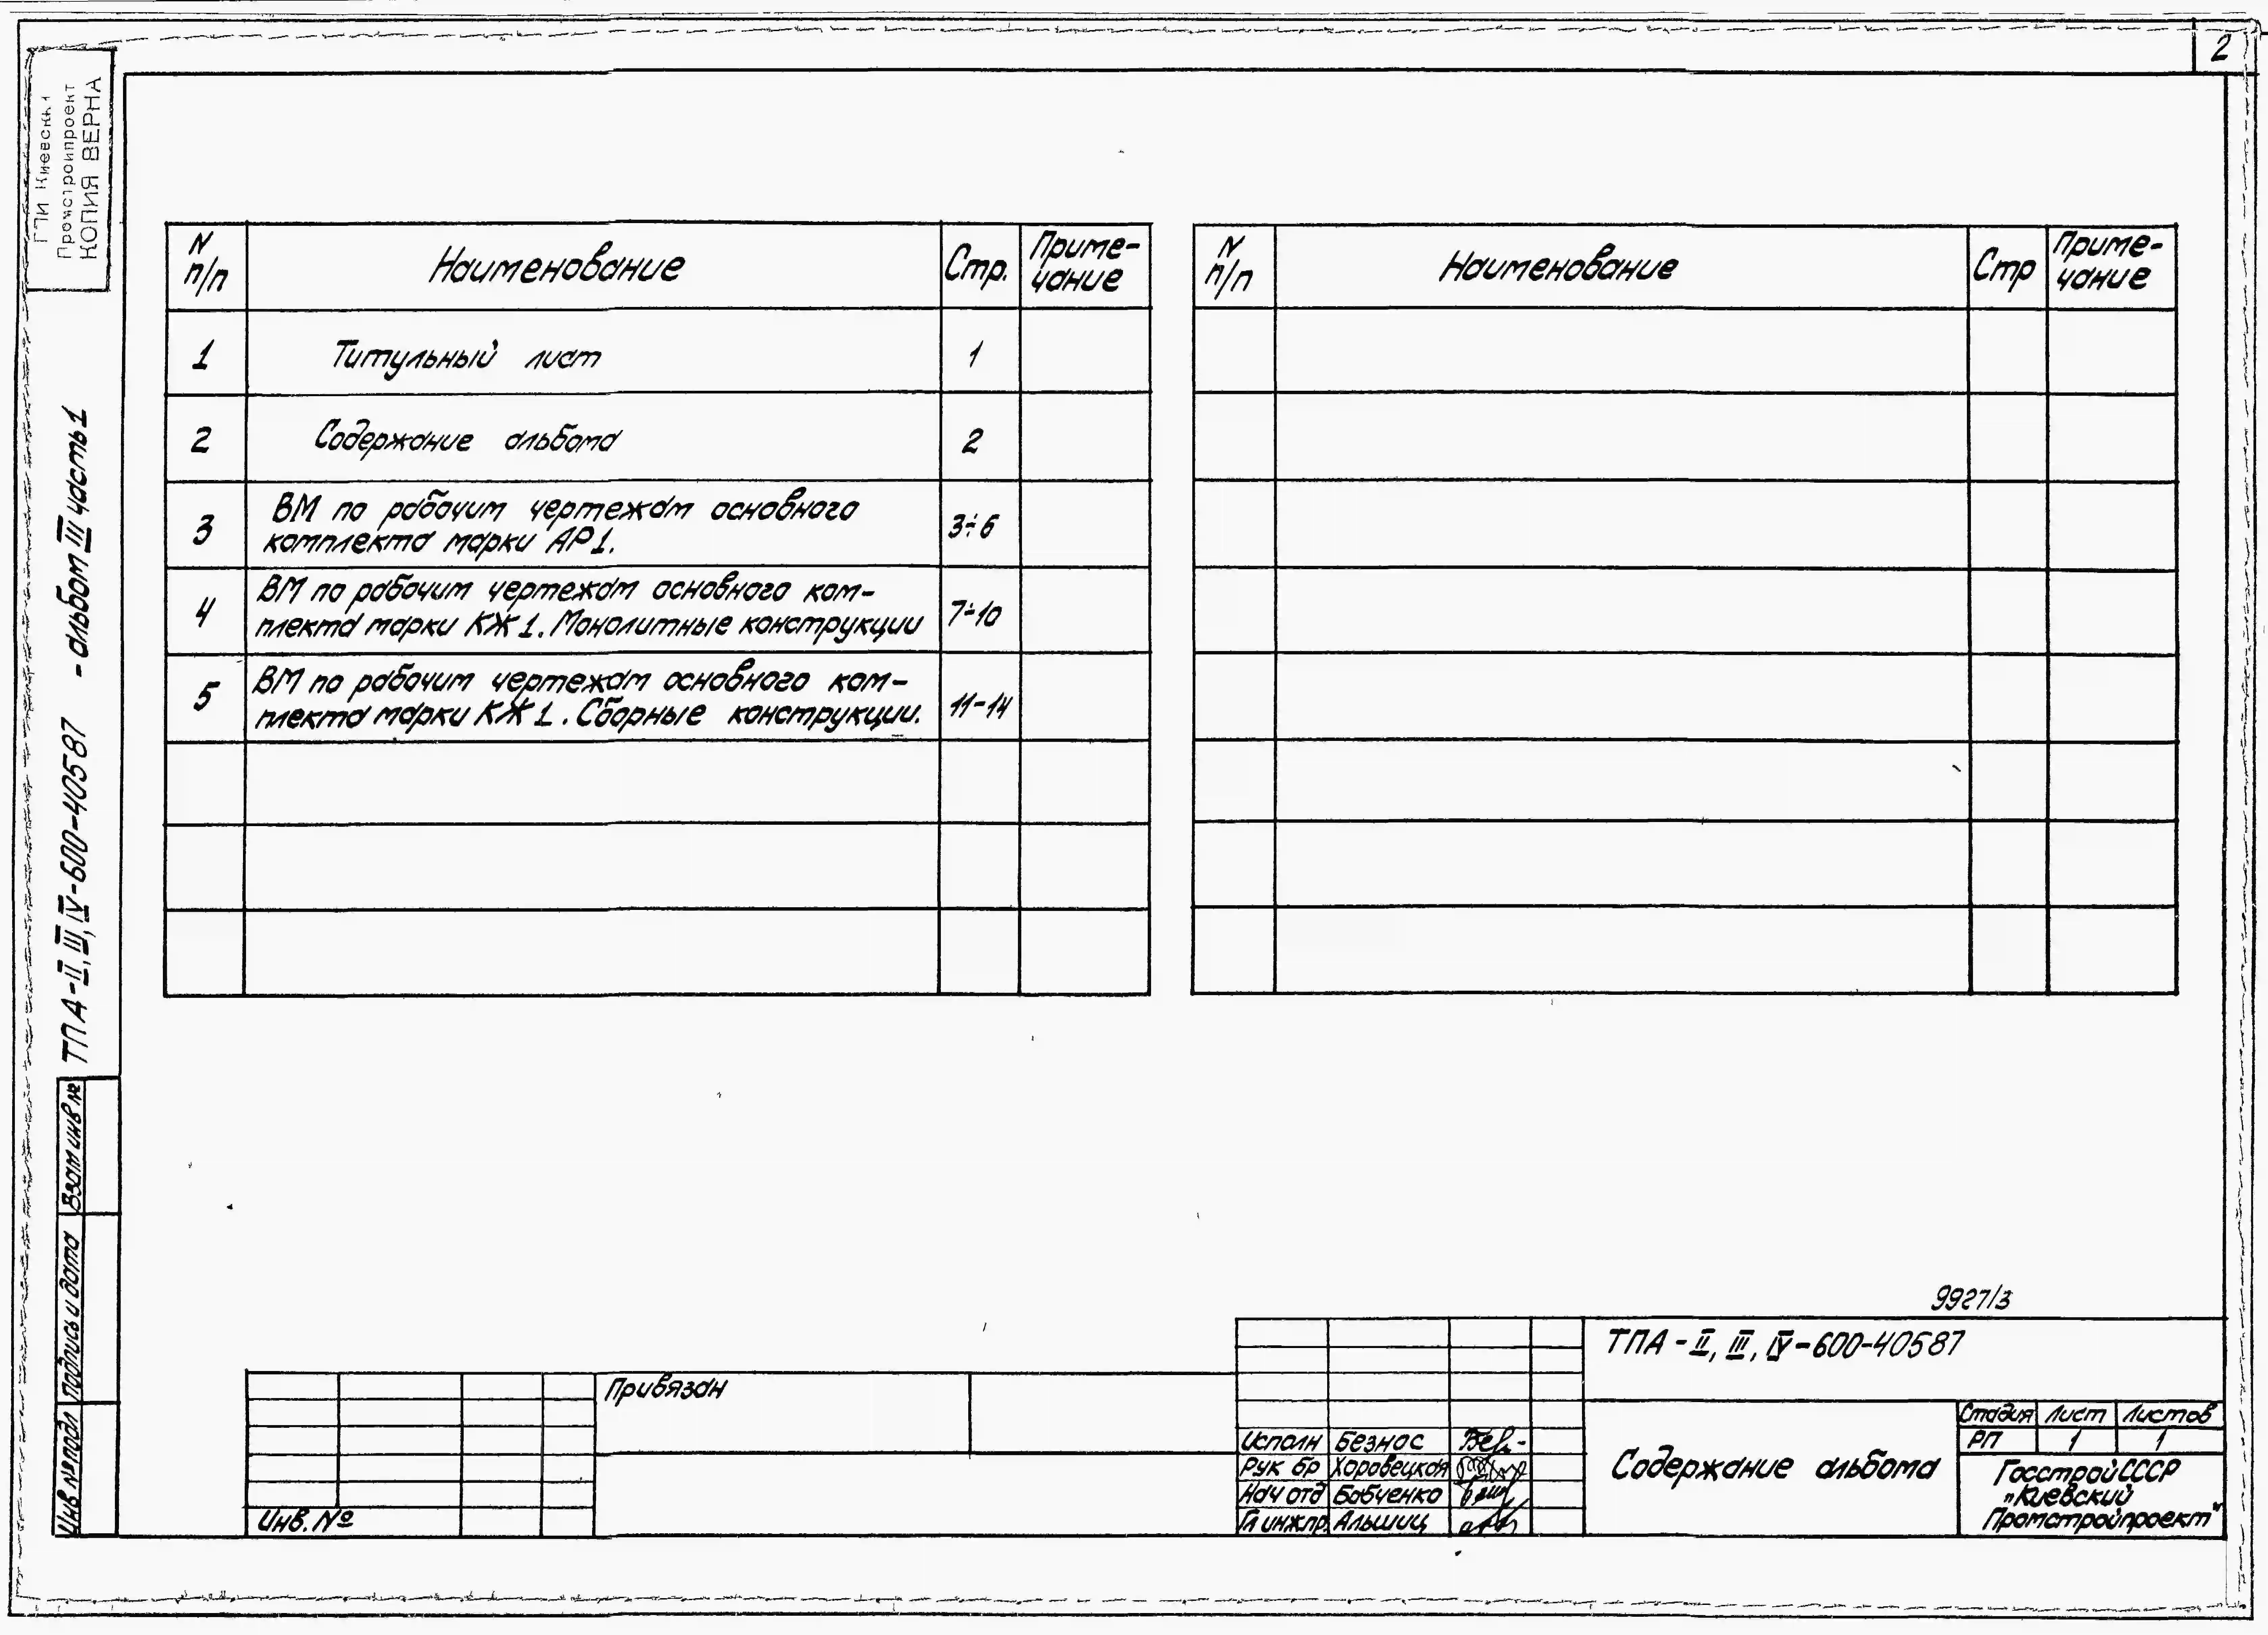 2
ГПИ Киевский
Промстройпроект
КОПИЯ ВЕРНА
ТПА-II, III, IV-600-40587 - альбом III часть 1
N п/п
Наименование
Стр.
Приме-
чание
1 Титульный лист 1
2 Содержание альбома 2
3 ВМ по рабочим чертежам основного
комплекта марки АР1. 3÷6
4 ВМ по рабочим чертежам основного ком-
плекта марки КЖ1. Монолитные конструкции 7÷10
5 ВМ по рабочим чертежам основного ком-
плекта марки КЖ1. Сборные конструкции. 11-14
N п/п
Наименование
Стр
Приме-
чание
Взам инв №
Подпись и дата
Инв № подл
9927/3
ТПА - II, III, IV-600-40587
Привязан
Инв. №
Исполн Безнос
Рук бр Хоровецкая
Нач отд Бабченко
Гл инж.пр. Альшиц
Содержание альбома
Стадия Лист Листов
РП 1 1
Госстрой СССР
„Киевский
Промстройпроект"